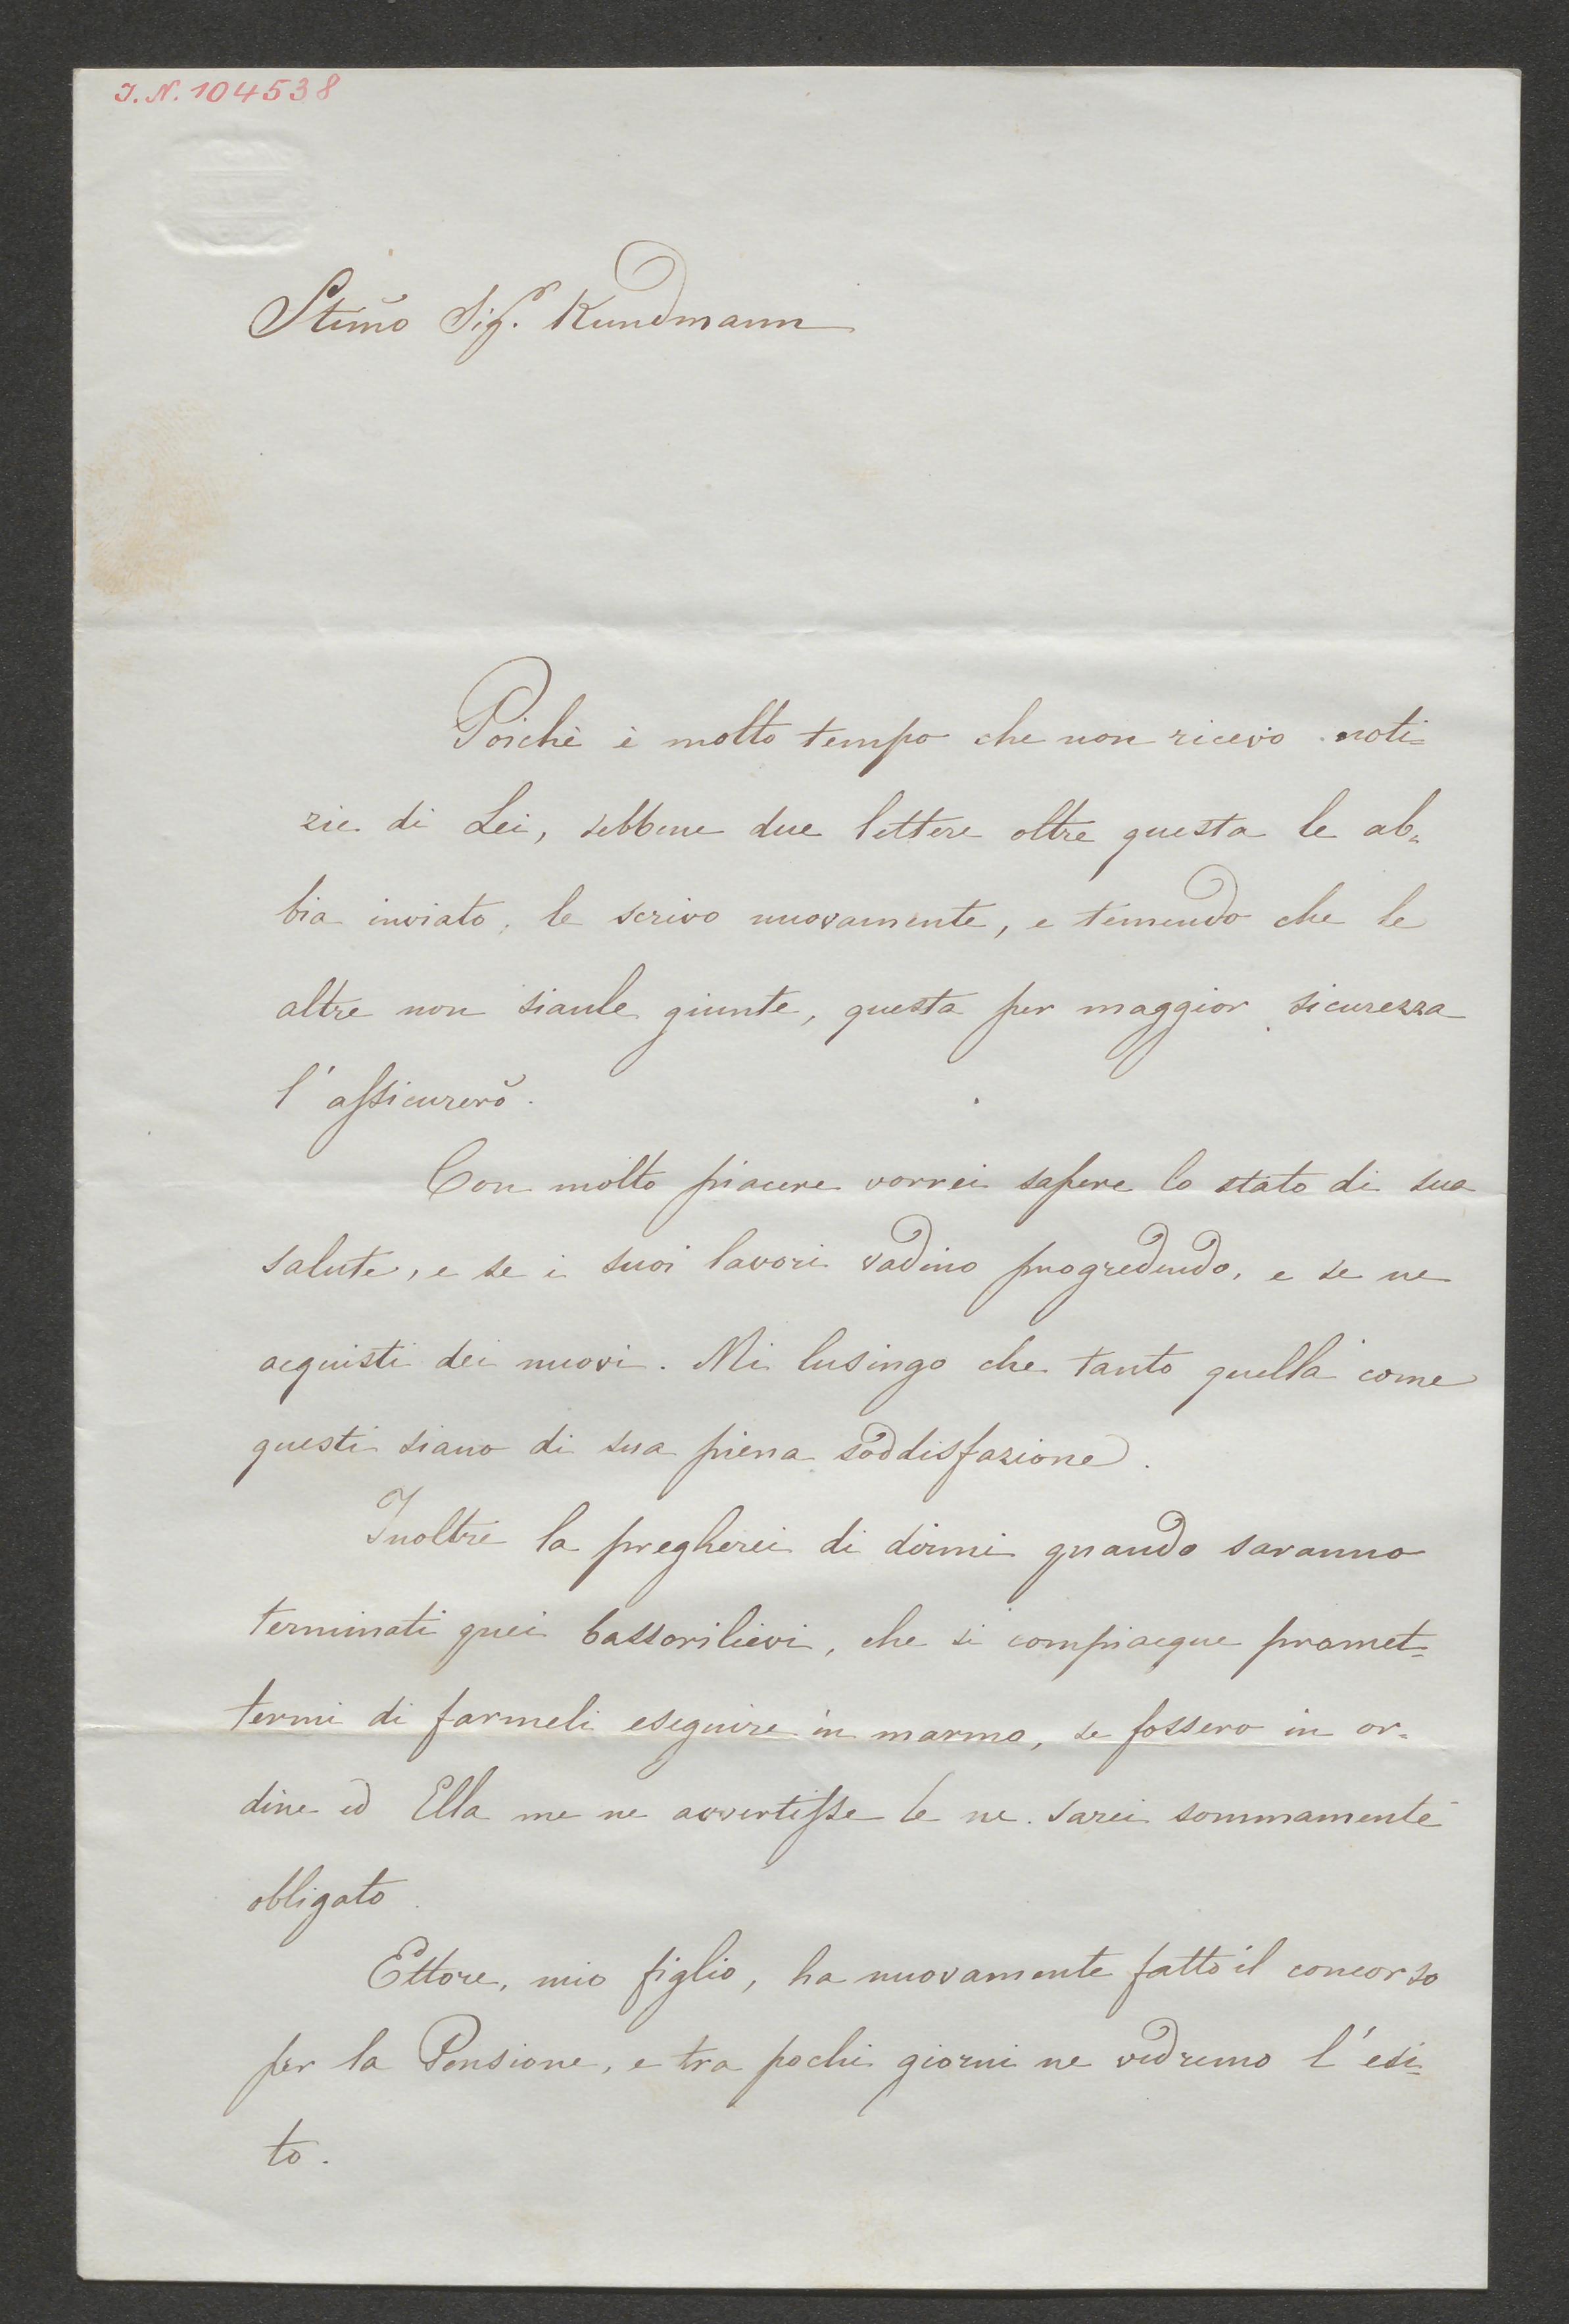 J. N. 104538
Stim̃o Sig. Kundmann
Poichè è molto tempo che non ricevo noti=
zie di Lei, sebbene due lettere oltre questa le ab=
bia inviato, le scrivo nuovamente, e temendo che le
altre non sianle giunte, questa per maggior sicurezza
l'assicurerò.
Con molto piacere vorrei sapere lo stato di sua
salute, e se i suoi lavori vadino progredendo, e se ne
acquisti dei nuovi. Mi lusingo che tanto quella come
questi siano di sua piena soddisfazione.
Inoltre la pregherei di dirmi quando saranno
terminati quei bassorilievi, che si compiacque promet=
termi di farmeli eseguire in marmo, se fossero in or=
dine ed Ella me ne avvertisse le ne sarei sommamente
obligato.
Ettore, mio figlio, ha nuovamente fatto il concorso
per la Pensione, e tra pochi giorni ne vedremo l'esi=
to.